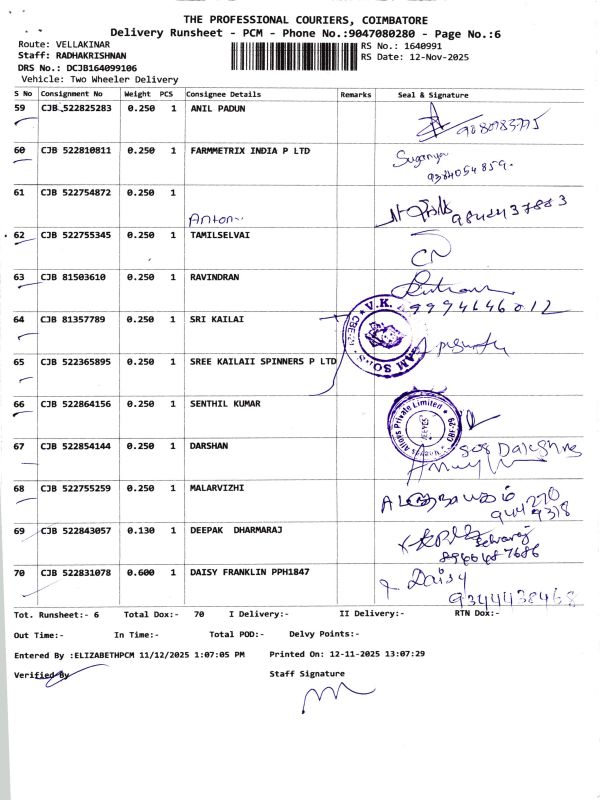 THE PROFESSIONAL COURIERS, COIMBATORE
Delivery Runsheet - PCM - Phone No.:9047080280 - Page No.:6
Route: VELLAKINAR RS No.: 1640991
Staff: RADHAKRISHNAN RS Date: 12-Nov-2025
DRS No.: DCJB164099106
Vehicle: Two Wheeler Delivery
S No Consignment No Weight PCS Consignee Details Remarks Seal & Signature
59 CJB 522825283 0.250 1 ANIL PADUN
60 CJB 522810811 0.250 1 FARMMETRIX INDIA P LTD Suganya
9384054859.
61 CJB 522754872 0.250 1
Anton 9842437883
62 CJB 522755345 0.250 1 TAMILSELVAI
CN
63 CJB 81503610 0.250 1 RAVINDRAN
9994646012
64 CJB 81357789 0.250 1 SRI KAILAI V.K.
65 CJB 522365895 0.250 1 SREE KAILAII SPINNERS P LTD
66 CJB 522864156 0.250 1 SENTHIL KUMAR Alloys Private Limited
67 CJB 522854144 0.250 1 DARSHAN
68 CJB 522755259 0.250 1 MALARVIZHI
944270
9378
69 CJB 522843057 0.130 1 DEEPAK DHARMARAJ Selvaraj
8946487686
70 CJB 522831078 0.600 1 DAISY FRANKLIN PPH1847 Daisy
9344438468
Tot. Runsheet:- 6 Total Dox:- 70 I Delivery:- II Delivery:- RTN Dox:-
Out Time:- In Time:- Total POD:- Delvy Points:-
Entered By :ELIZABETHPCM 11/12/2025 1:07:05 PM Printed On: 12-11-2025 13:07:29
Verified By Staff Signature